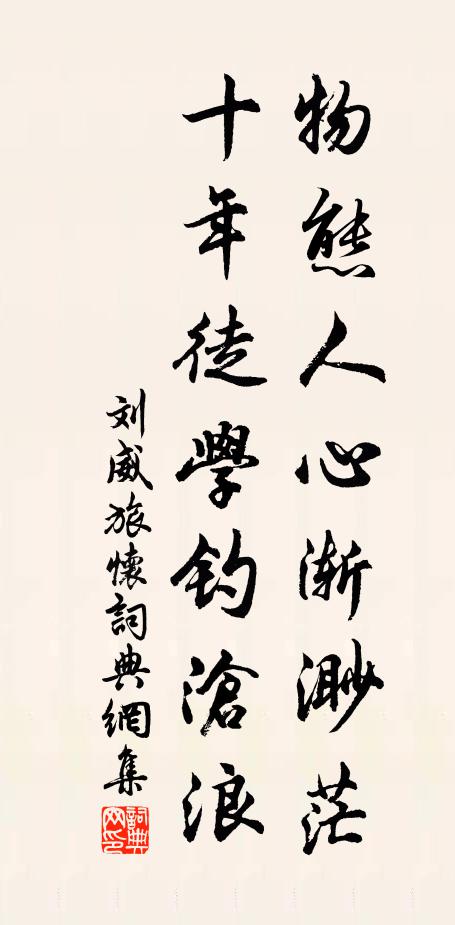 物態人心渐渺茫
十年徒學钓滄浪
刘威旅懷詞典網集
詞典網印